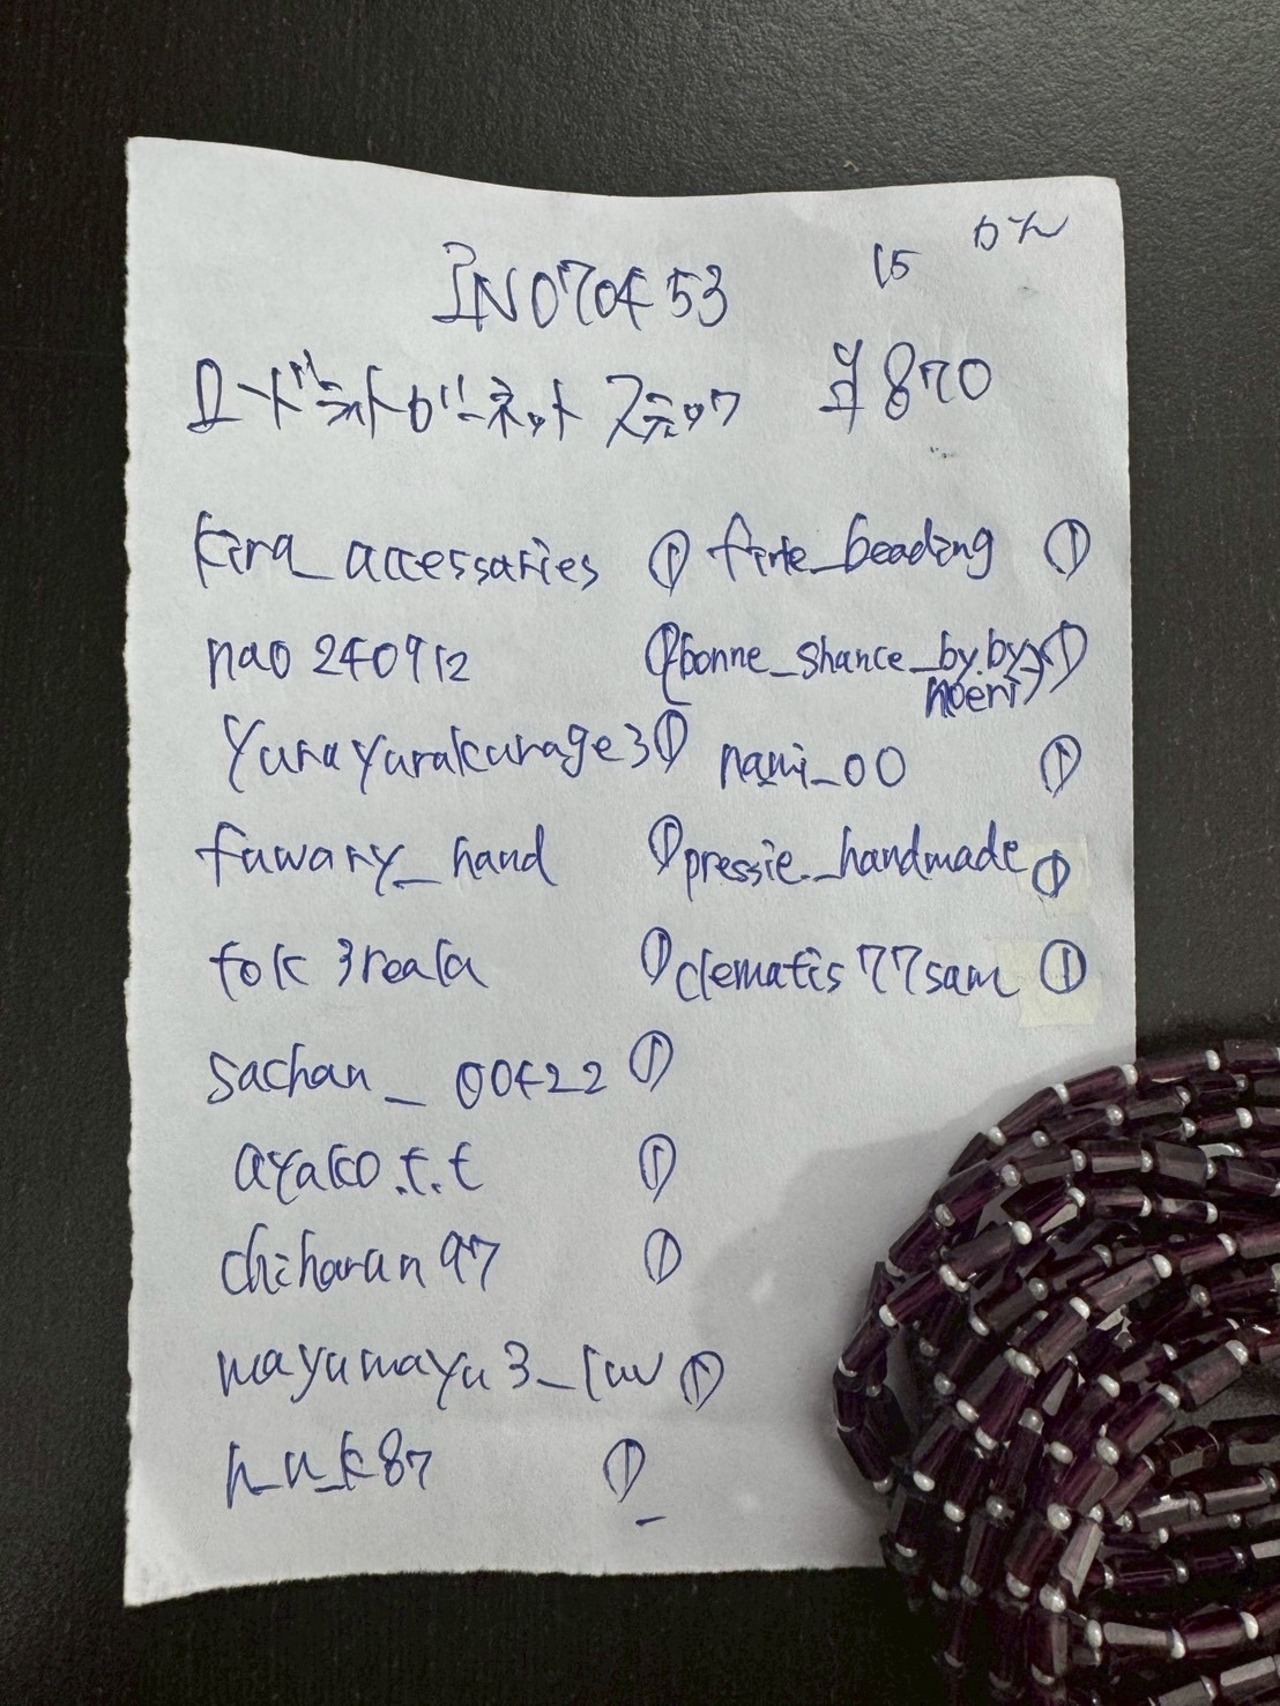 IN070453 15 かん
ロードライトガーネット スティック ¥870
kira_accessaries ①
nao 240912 ①
yurayurakurage3 ①
fuwary_hand ①
tok 3reala ①
sachan_00422 ①
ayako.t.t ①
chiharan97 ①
mayumayu3_luv ①
n_n_k87 ①
firte_beading ①
(bonne_shance_by.by
noeri) ①
nami_00 ①
pressie._handmade ①
clematis77sam ①